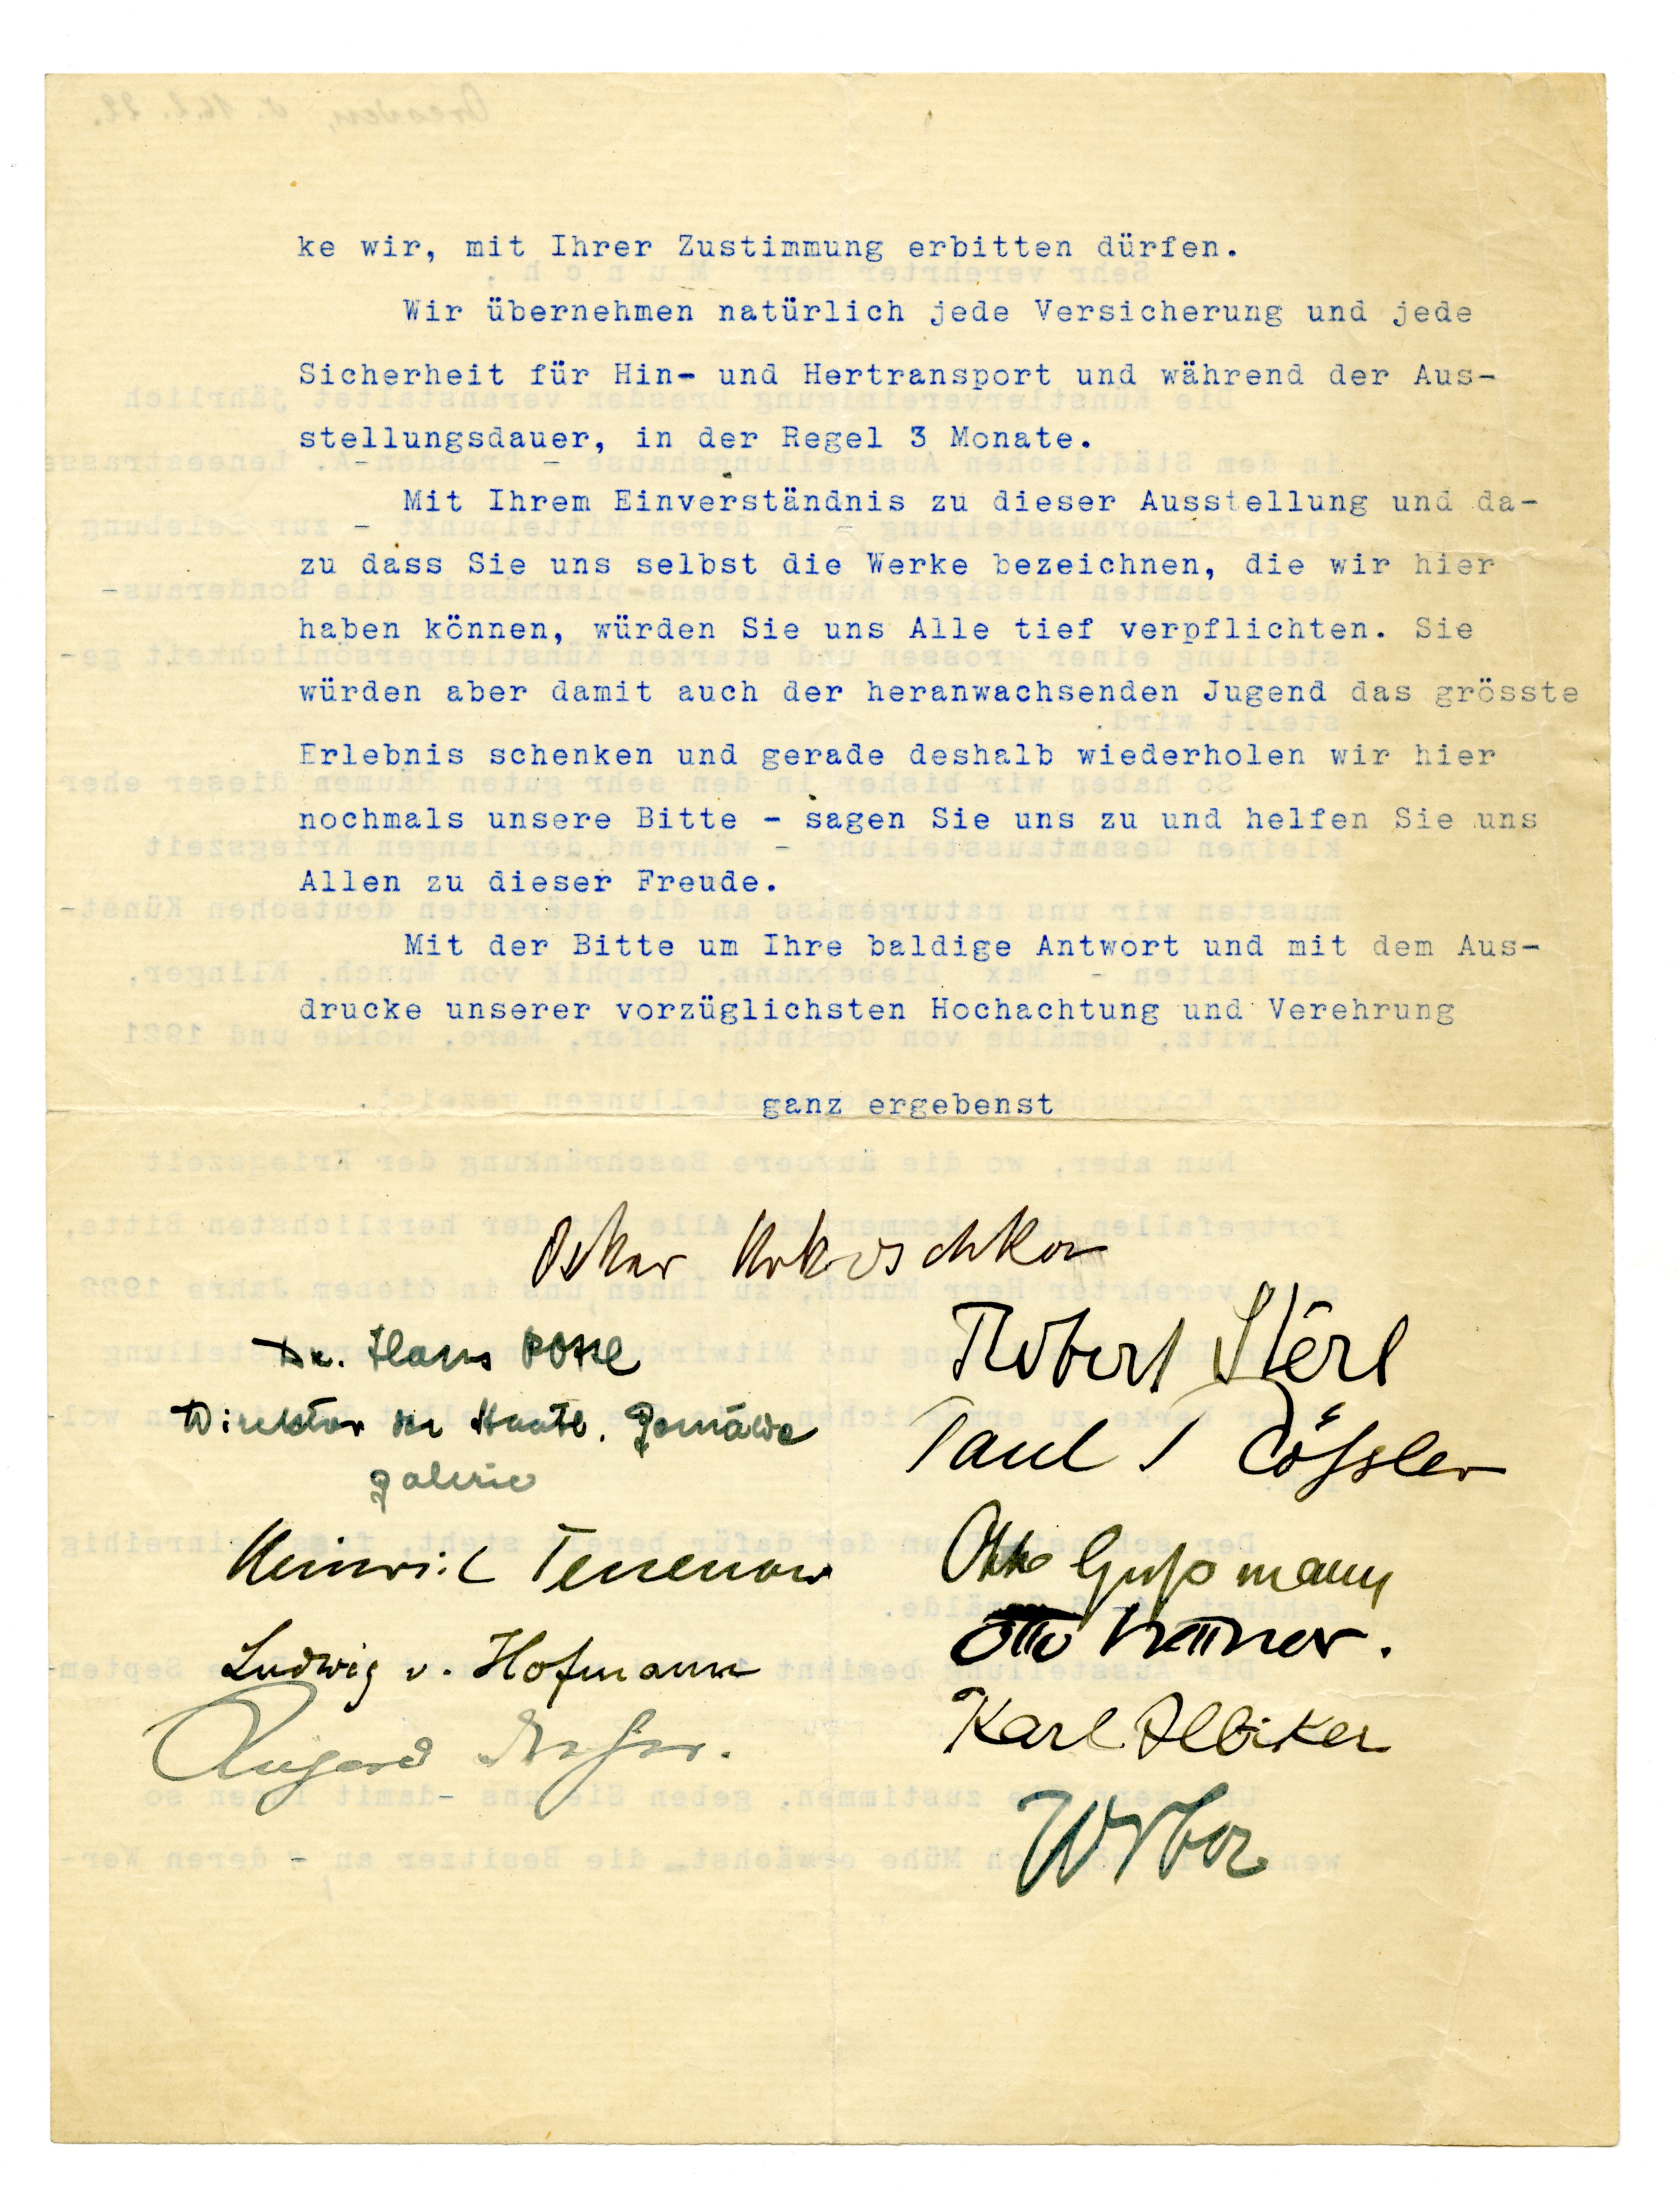 ke wir, mit Ihrer Zustimmung erbitten dürfen.
Wir übernehmen natürlich jede Versicherung und jede
Sicherheit für Hin- und Hertransport und während der Aus-
stellungsdauer, in der Regel 3 Monate.
Mit Ihrem Einverständnis zu dieser Ausstellung und da-
zu dass Sie uns selbst die Werke bezeichnen, die wir hier
haben können, würden Sie uns Alle tief verpflichten. Sie
würden aber damit auch der heranwachsenden Jugend das grösste
Erlebnis schenken und gerade deshalb wiederholen wir hier
nochmals unsere Bitte - sagen Sie uns zu und helfen Sie uns
Allen zu dieser Freude.
Mit der Bitte um Ihre baldige Antwort und mit dem Aus-
drucke unserer vorzüglichsten Hochachtung und Verehrung
ganz ergebenst
Oskar Kokoschka
Robert Sterl
Dr. Hans Posse
Direktor der Staatl. Gemälde
galerie
Paul Rößler
Heinrich Tessenow
Otto Gußmann
Ludwig v. Hofmann
Otto Hettner.
Karl Albiker
Wrba